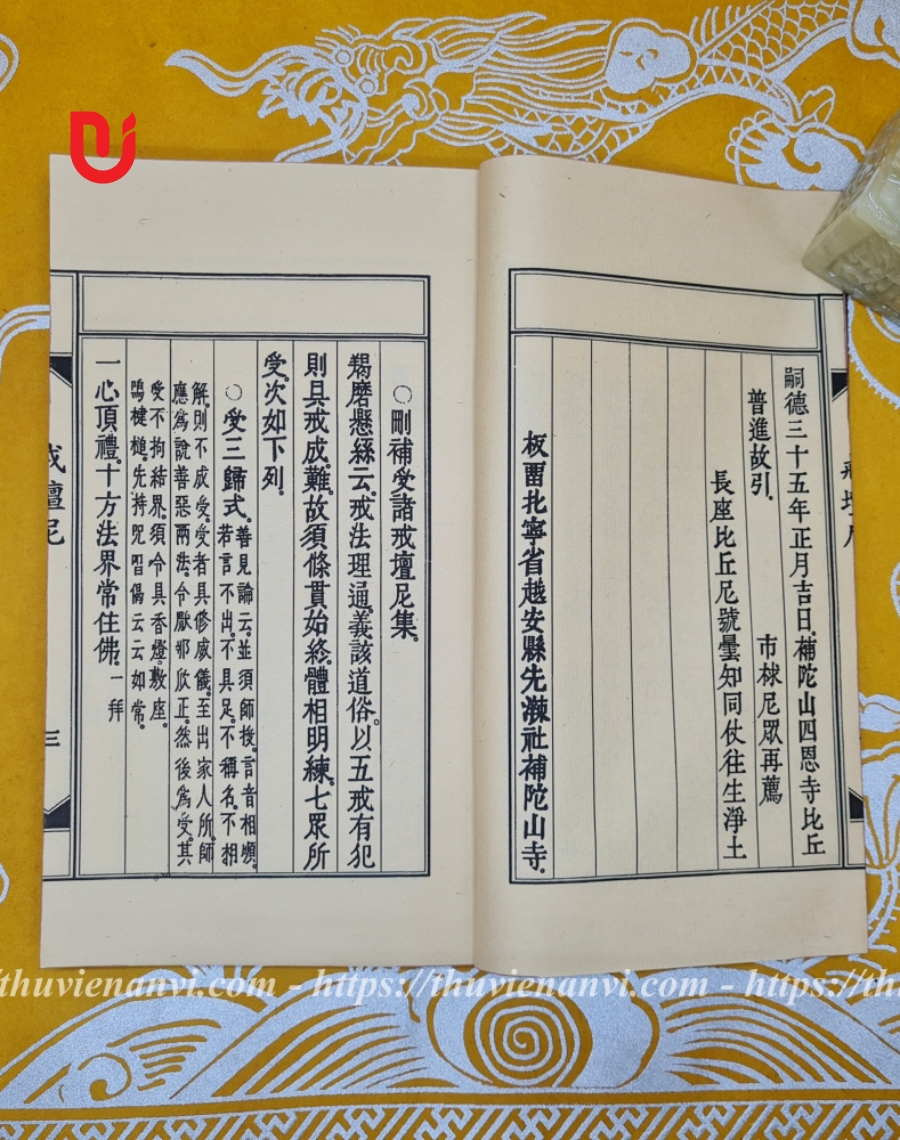 嗣德三十五年正月吉日補陀山四恩寺比丘
普進故引 市梂尼眾再薦
長座比丘尼號曇知同仗往生淨土
板畱北寧省越安縣先𣿅社補陀山寺
○刪補受諸戒壇尼集
羯磨懸絲云戒法理通義該道俗以五戒有犯
則具戒成難故須條貫始終體相明練七眾所
受次如下列
○受三歸式善見論云並須師授言音相順
若言不出不具足不稱名不相
解則不成受受者具修威儀至出家人所師
應為說善惡兩法令厭邪欣正然後為受其
受不拘結界須令具香燈敷座
鳴楗槌先持呪唱偈云云如常
一心頂禮十方法界常住佛一拜
戒壇尼
三
thuvienanvi.com - https://thuvienanvi.com - https://thu